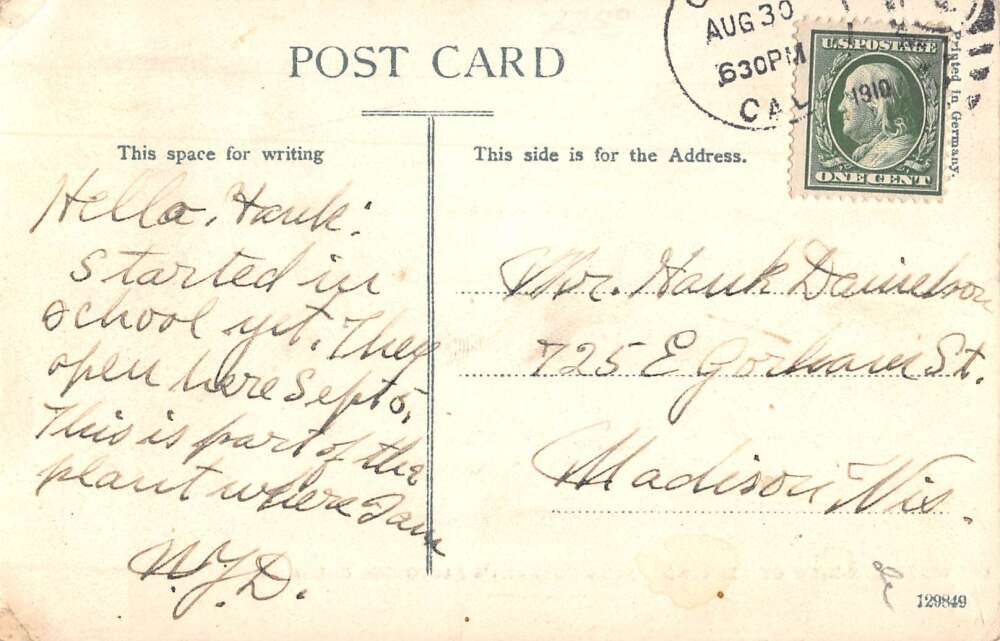 POST CARD
AUG 30
630PM
CAL
1910
U.S. POSTAGE
ONE CENT
Printed in Germany.
This space for writing
This side is for the Address.
Hello, Hank:
Started in
school yet. They
open here Sept 5,
This is part of the
plant where I am
W.Y.D.
Mr. Hank Danielson
725 E Gorham St.
Madison Wis.
129849